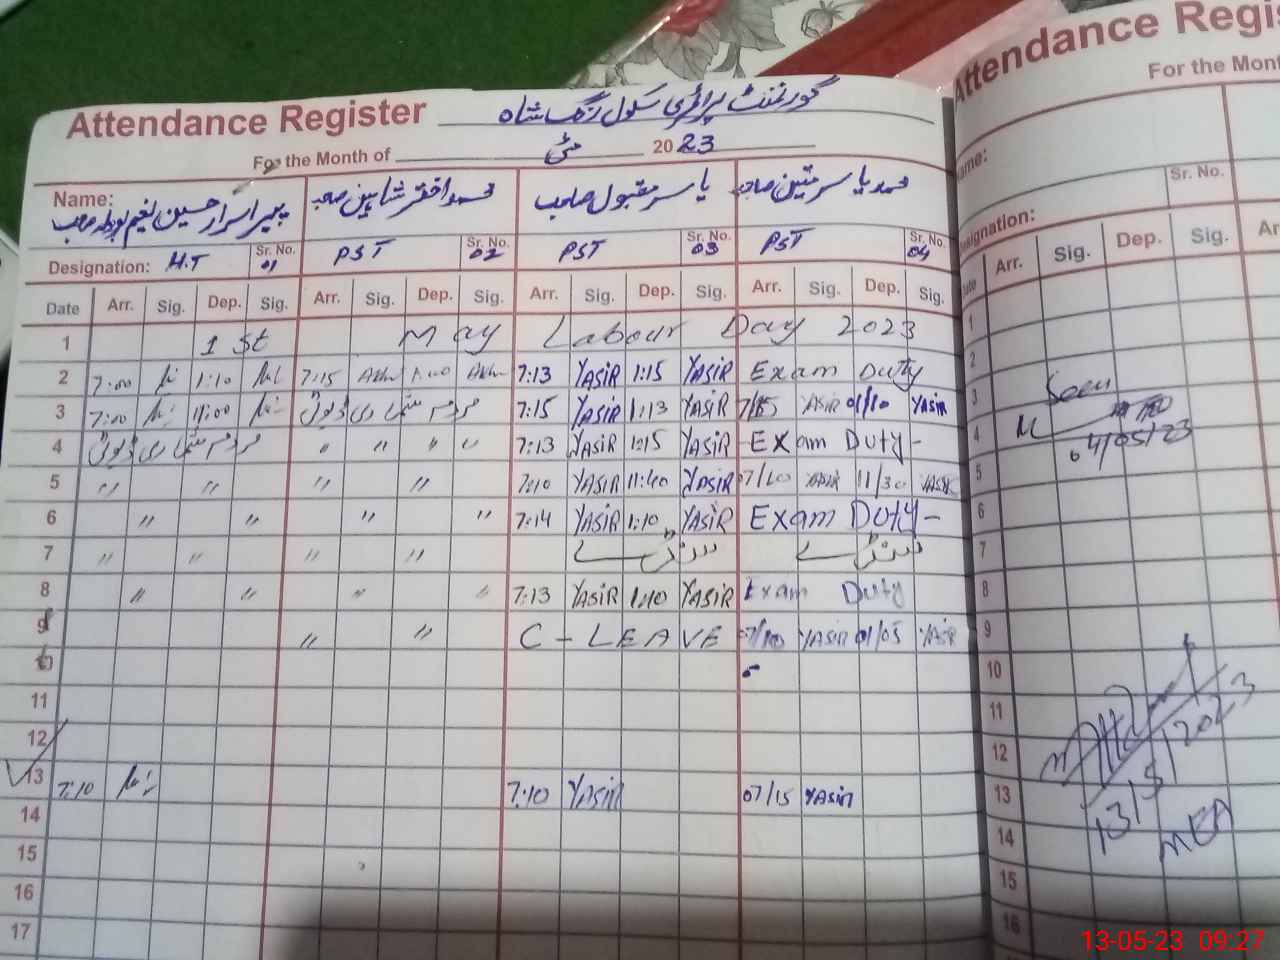 Attendance Register گورنمنٹ پرائمری سکول زنگ شاہ
For the Month of مئی 2023
Name: پیر اسرار حسین نعیم صاحب محمد اختر شاہین صاحب یاسر مقبول صاحب محمد یاسر متین صاحب
Designation: H.T Sr. No. 01 PST Sr. No. 02 PST Sr. No. 03 PST Sr. No. 04
Date Arr. Sig. Dep. Sig. Arr. Sig. Dep. Sig. Arr. Sig. Dep. Sig. Arr. Sig. Dep. Sig.
1 1 St May Labour Day 2023
2 7:00 1:10 7:15 1:00 7:13 YASIR 1:15 YASIR Exam Duty
3 7:00 11:00 مردم شماری ڈیوٹی 7:15 YASIR 1:13 YASIR 7/15 YASIR 01/10 YASIR
4 مردم شماری ڈیوٹی " " " " 7:13 YASIR 1:15 YASIR Exam Duty -
5 " " " " 7:10 YASIR 11:40 YASIR 07/10 YASIR 11/30 YASIR
6 " " " " 7:14 YASIR 1:10 YASIR Exam Duty -
7 " " " " سنڈے سنڈے
8 " " " " 7:13 YASIR 1:10 YASIR Exam Duty
9 " " C - LEAVE 07/10 YASIR 01/05 YASIR
10
11
12
13 7:10 7:10 YASIR 07/15 YASIR
14
15
16
17
Attendance Regi
For the Mont
ame:
Sr. No.
signation:
Arr. Sig. Dep. Sig. Ar
1
2
3 Seen
4 04/05/23
5
6
7
8
9
10
11
12
13 13/5/2023
14 MEA
15
16
13-05-23 09:27